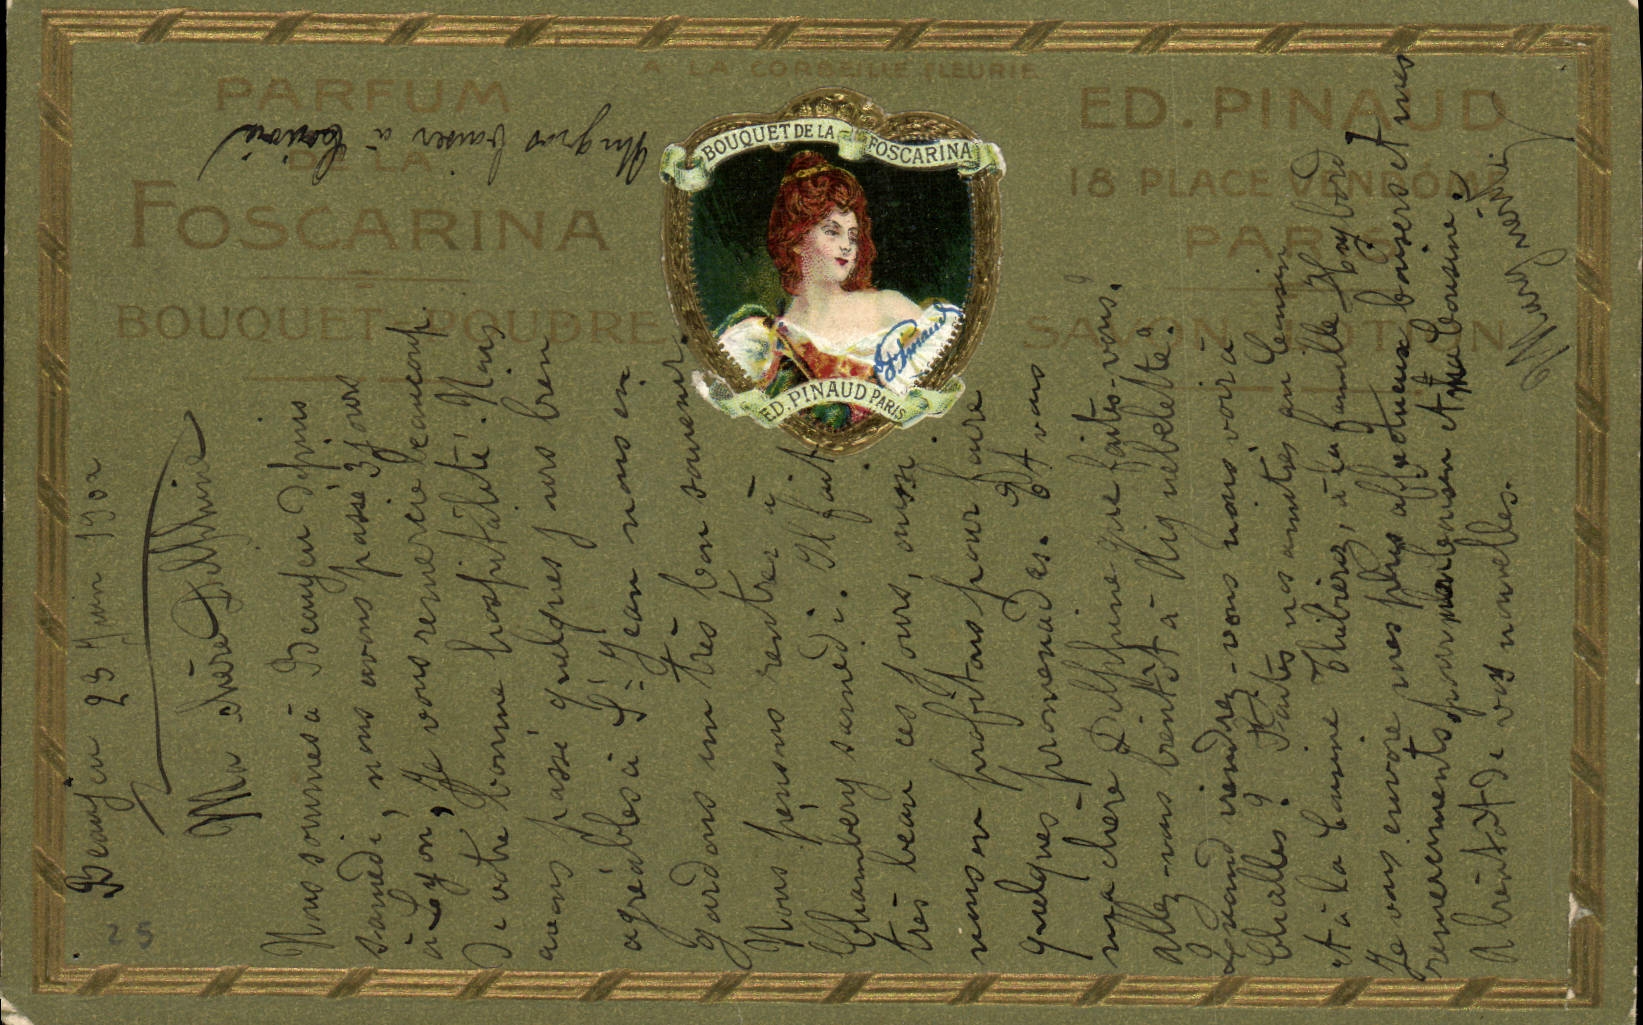 A LA CORBEILLE FLEURIE
PARFUM
DE LA
FOSCARINA
BOUQUET - POUDRE
BOUQUET DE LA FOSCARINA
Ed Pinaud
ED. PINAUD PARIS
ED. PINAUD
18 PLACE VENDÔME
PARIS
SAVON - LOTION
Un gros baiser à
Beaujeu 23 Juin 1902
Ma chère Delphine
Nous sommes à Beaujeu depuis
samedi, nous avons passé 3 jours
à Lyon, Je vous remercie beaucoup
de votre bonne hospitalité. Nous
avons passé quelques jours bien
agréables à St Jean nous en
gardons un très bon souvenir.
Nous pensons rentrer à
Chambéry samedi. Il fait
très beau ces jours, aussi
nous en profitons pour faire
quelques promenades. Et vous
ma chère Delphine que faites-vous?
allez-vous bientôt à Aiguebelette?
Quand viendrez-vous nous voir à
Challes? Faites nos amitiés au Cousin
et à la Cousine Thibiez, à la famille
Je vous envoie mes plus affectueux baisers et mes
remerciements pour mon Cousin et ma Cousine.
A bientôt de vos nouvelles.
25